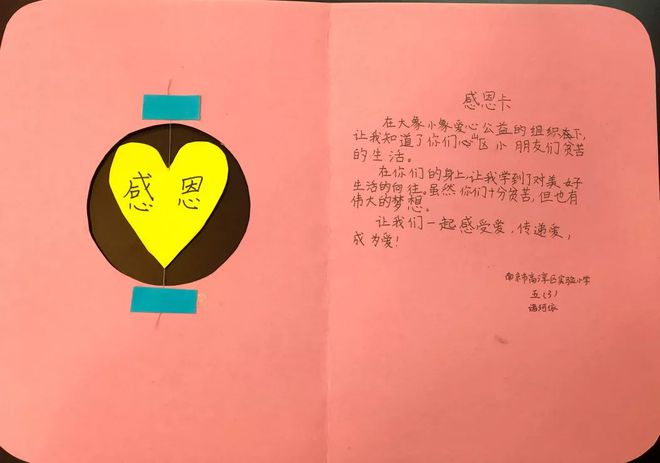 感 恩
感恩卡
在大象小象爱心公益的组织在下,
让我知道了你们山区小朋友们贫苦
的生活。
在你们的身上,让我学到了对美好
生活的向往。虽然你们十分贫苦,但也有
伟大的梦想。
让我们一起感受爱,传递爱,
成为爱!
南京市高淳区实验小学
五(3)